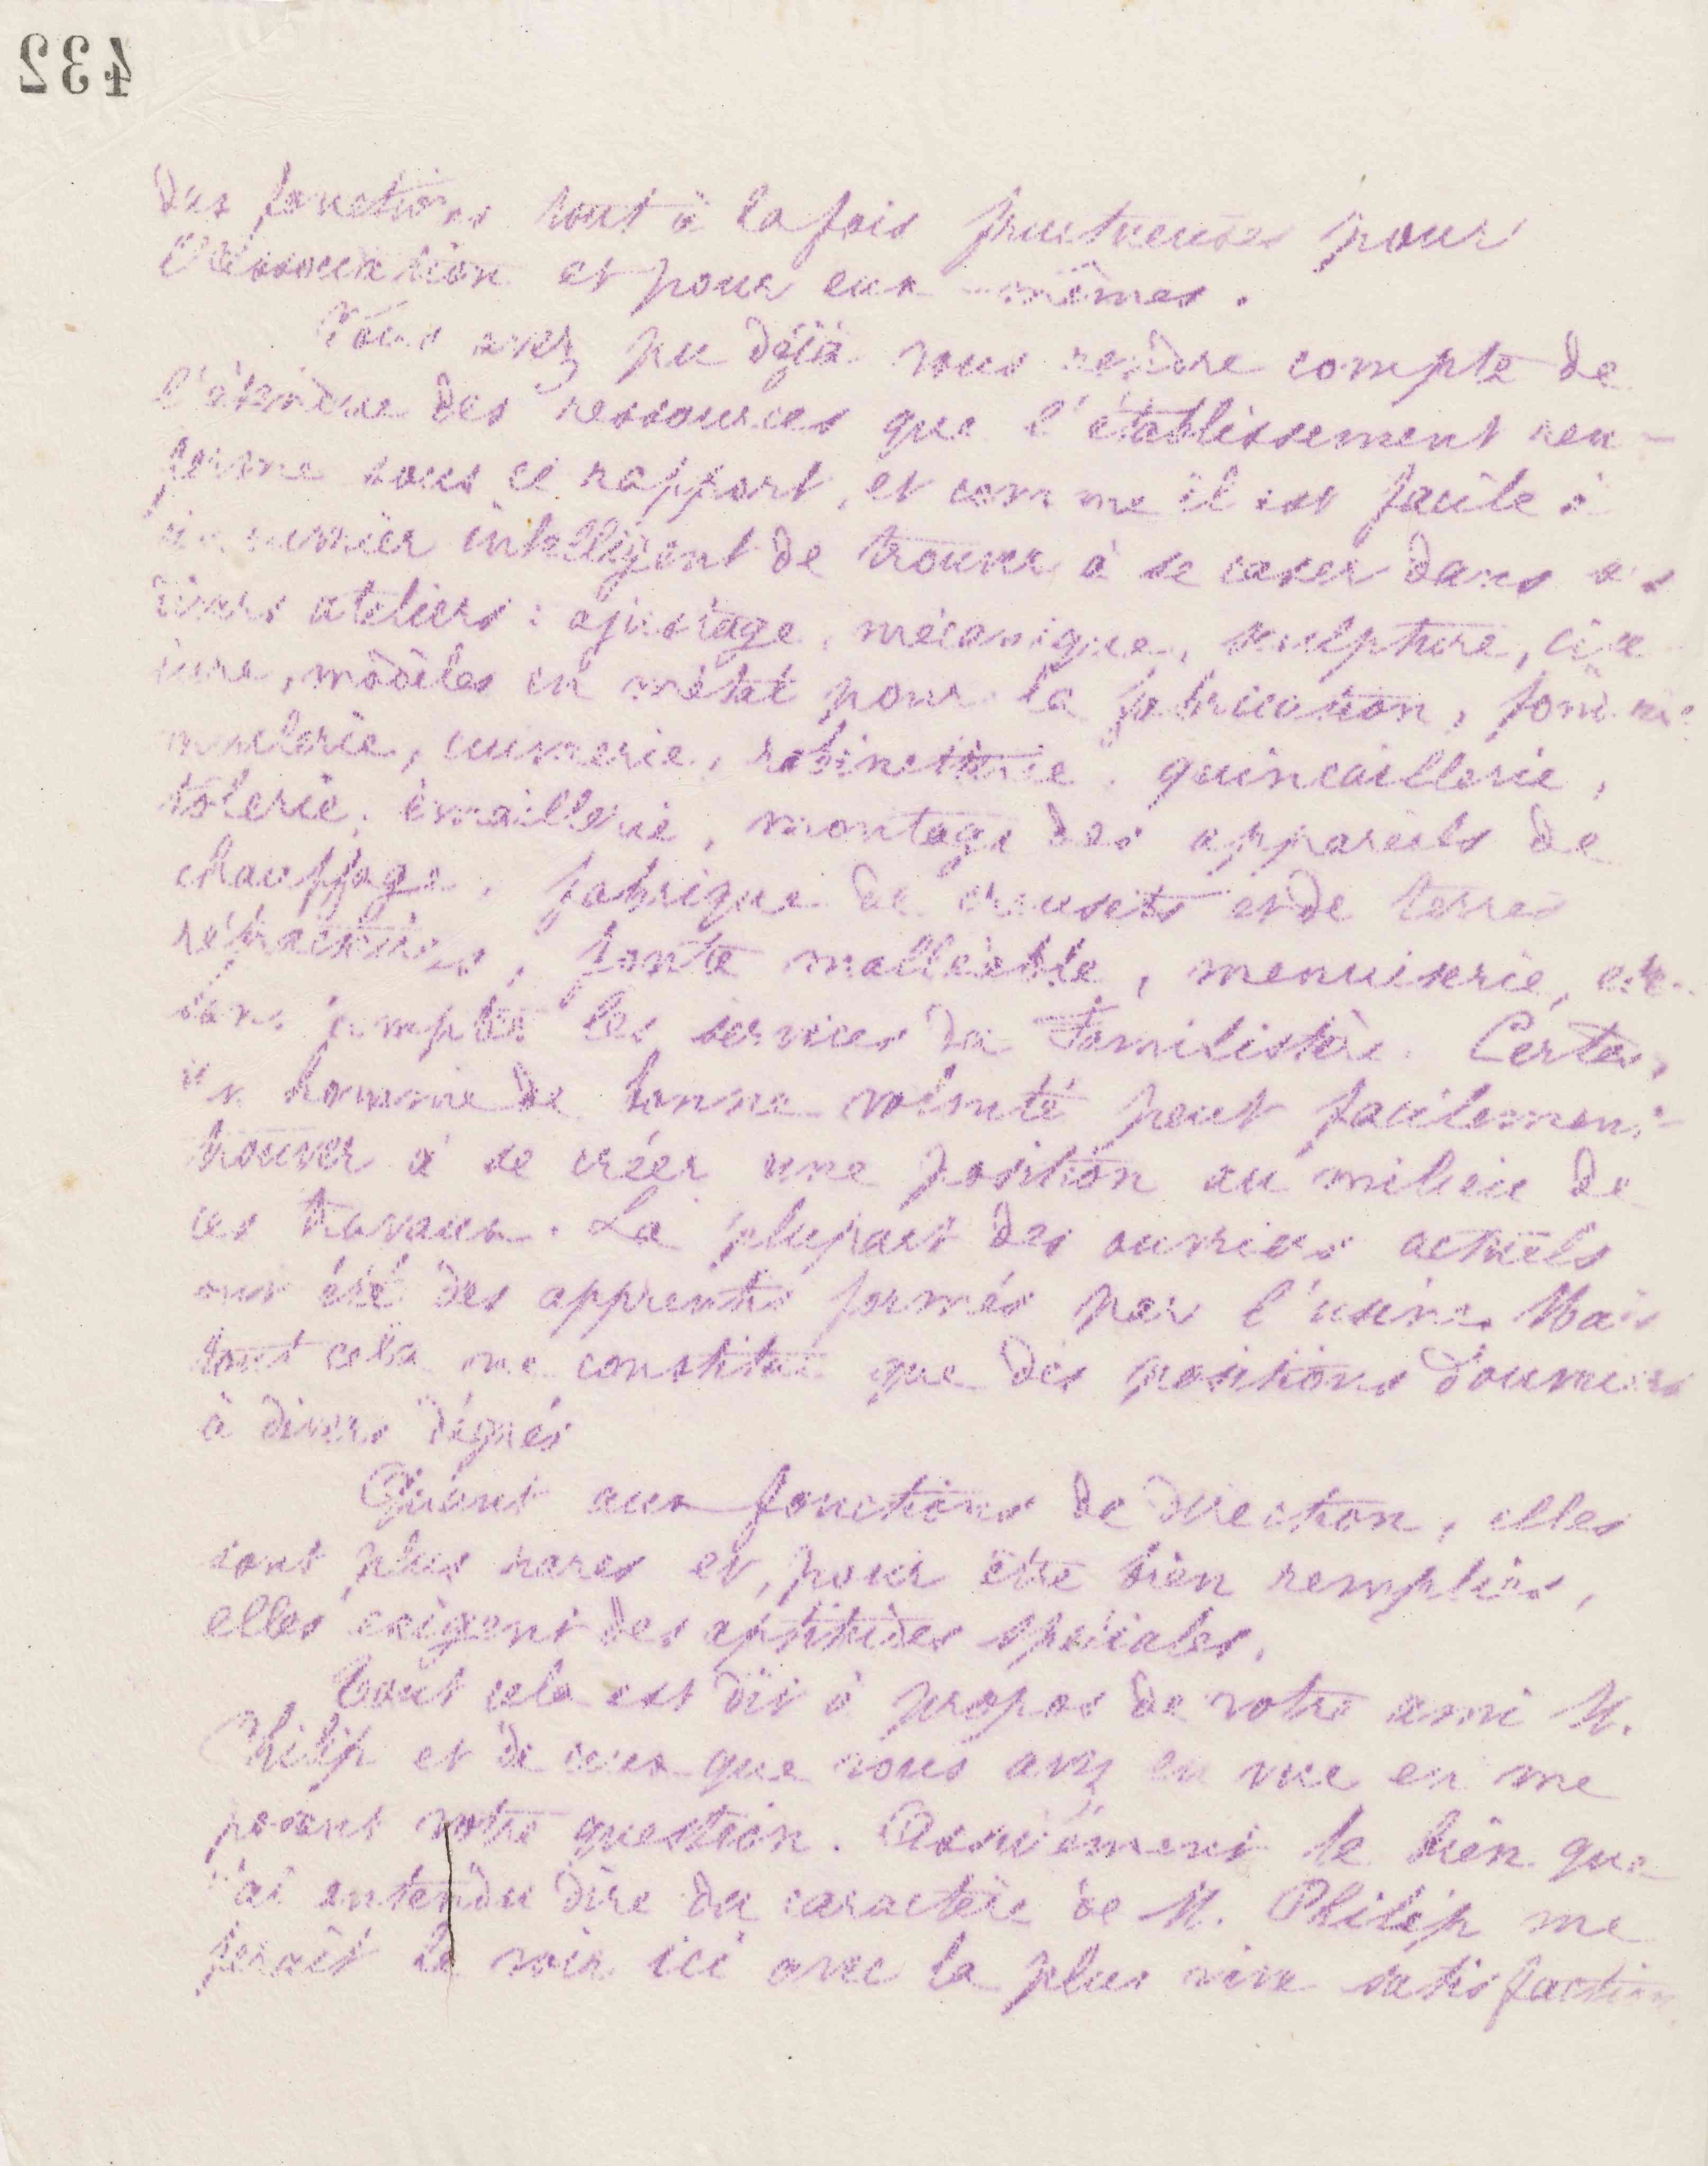 432
des fonctions tout à la fois fructueuses pour
l'Association et pour eux-mêmes.
Vous avez pu déjà vous rendre compte de
l'étendue des ressources que l'établissement ren-
ferme sous ce rapport, et comme il est facile à
un ouvrier intelligent de trouver à se caser dans ses
divers ateliers : ajustage, mécanique, sculpture, cise-
lure, modèles en métal pour la fabrication, fonderie
moulerie, cuivrerie, robinetterie, quincaillerie,
tôlerie, émaillerie, montage des appareils de
chauffage, fabrique de creusets et de terres
réfractaires, fonte malléable, menuiserie, etc..
sans compter les services du Familistère. Certes,
un homme de bonne volonté peut facilement
trouver à se créer une position au milieu de
ces travaux. La plupart des ouvriers actuels
ont été des apprentis formés par l'usine. Mais
tout cela ne constitue que des positions d'ouvriers
à divers dégrés
Quant aux fonctions de direction, elles
sont plus rares et, pour être bien remplies,
elles exigent des aptitudes spéciales.
Tout cela est dit à propos de votre ami M.
Philip et de ceux que vous avez en vue en me
posant votre question. Assurément le bien que
j'ai entendu dire du caractère de M. Philip me
ferait le voir ici avec la plus vive satisfaction